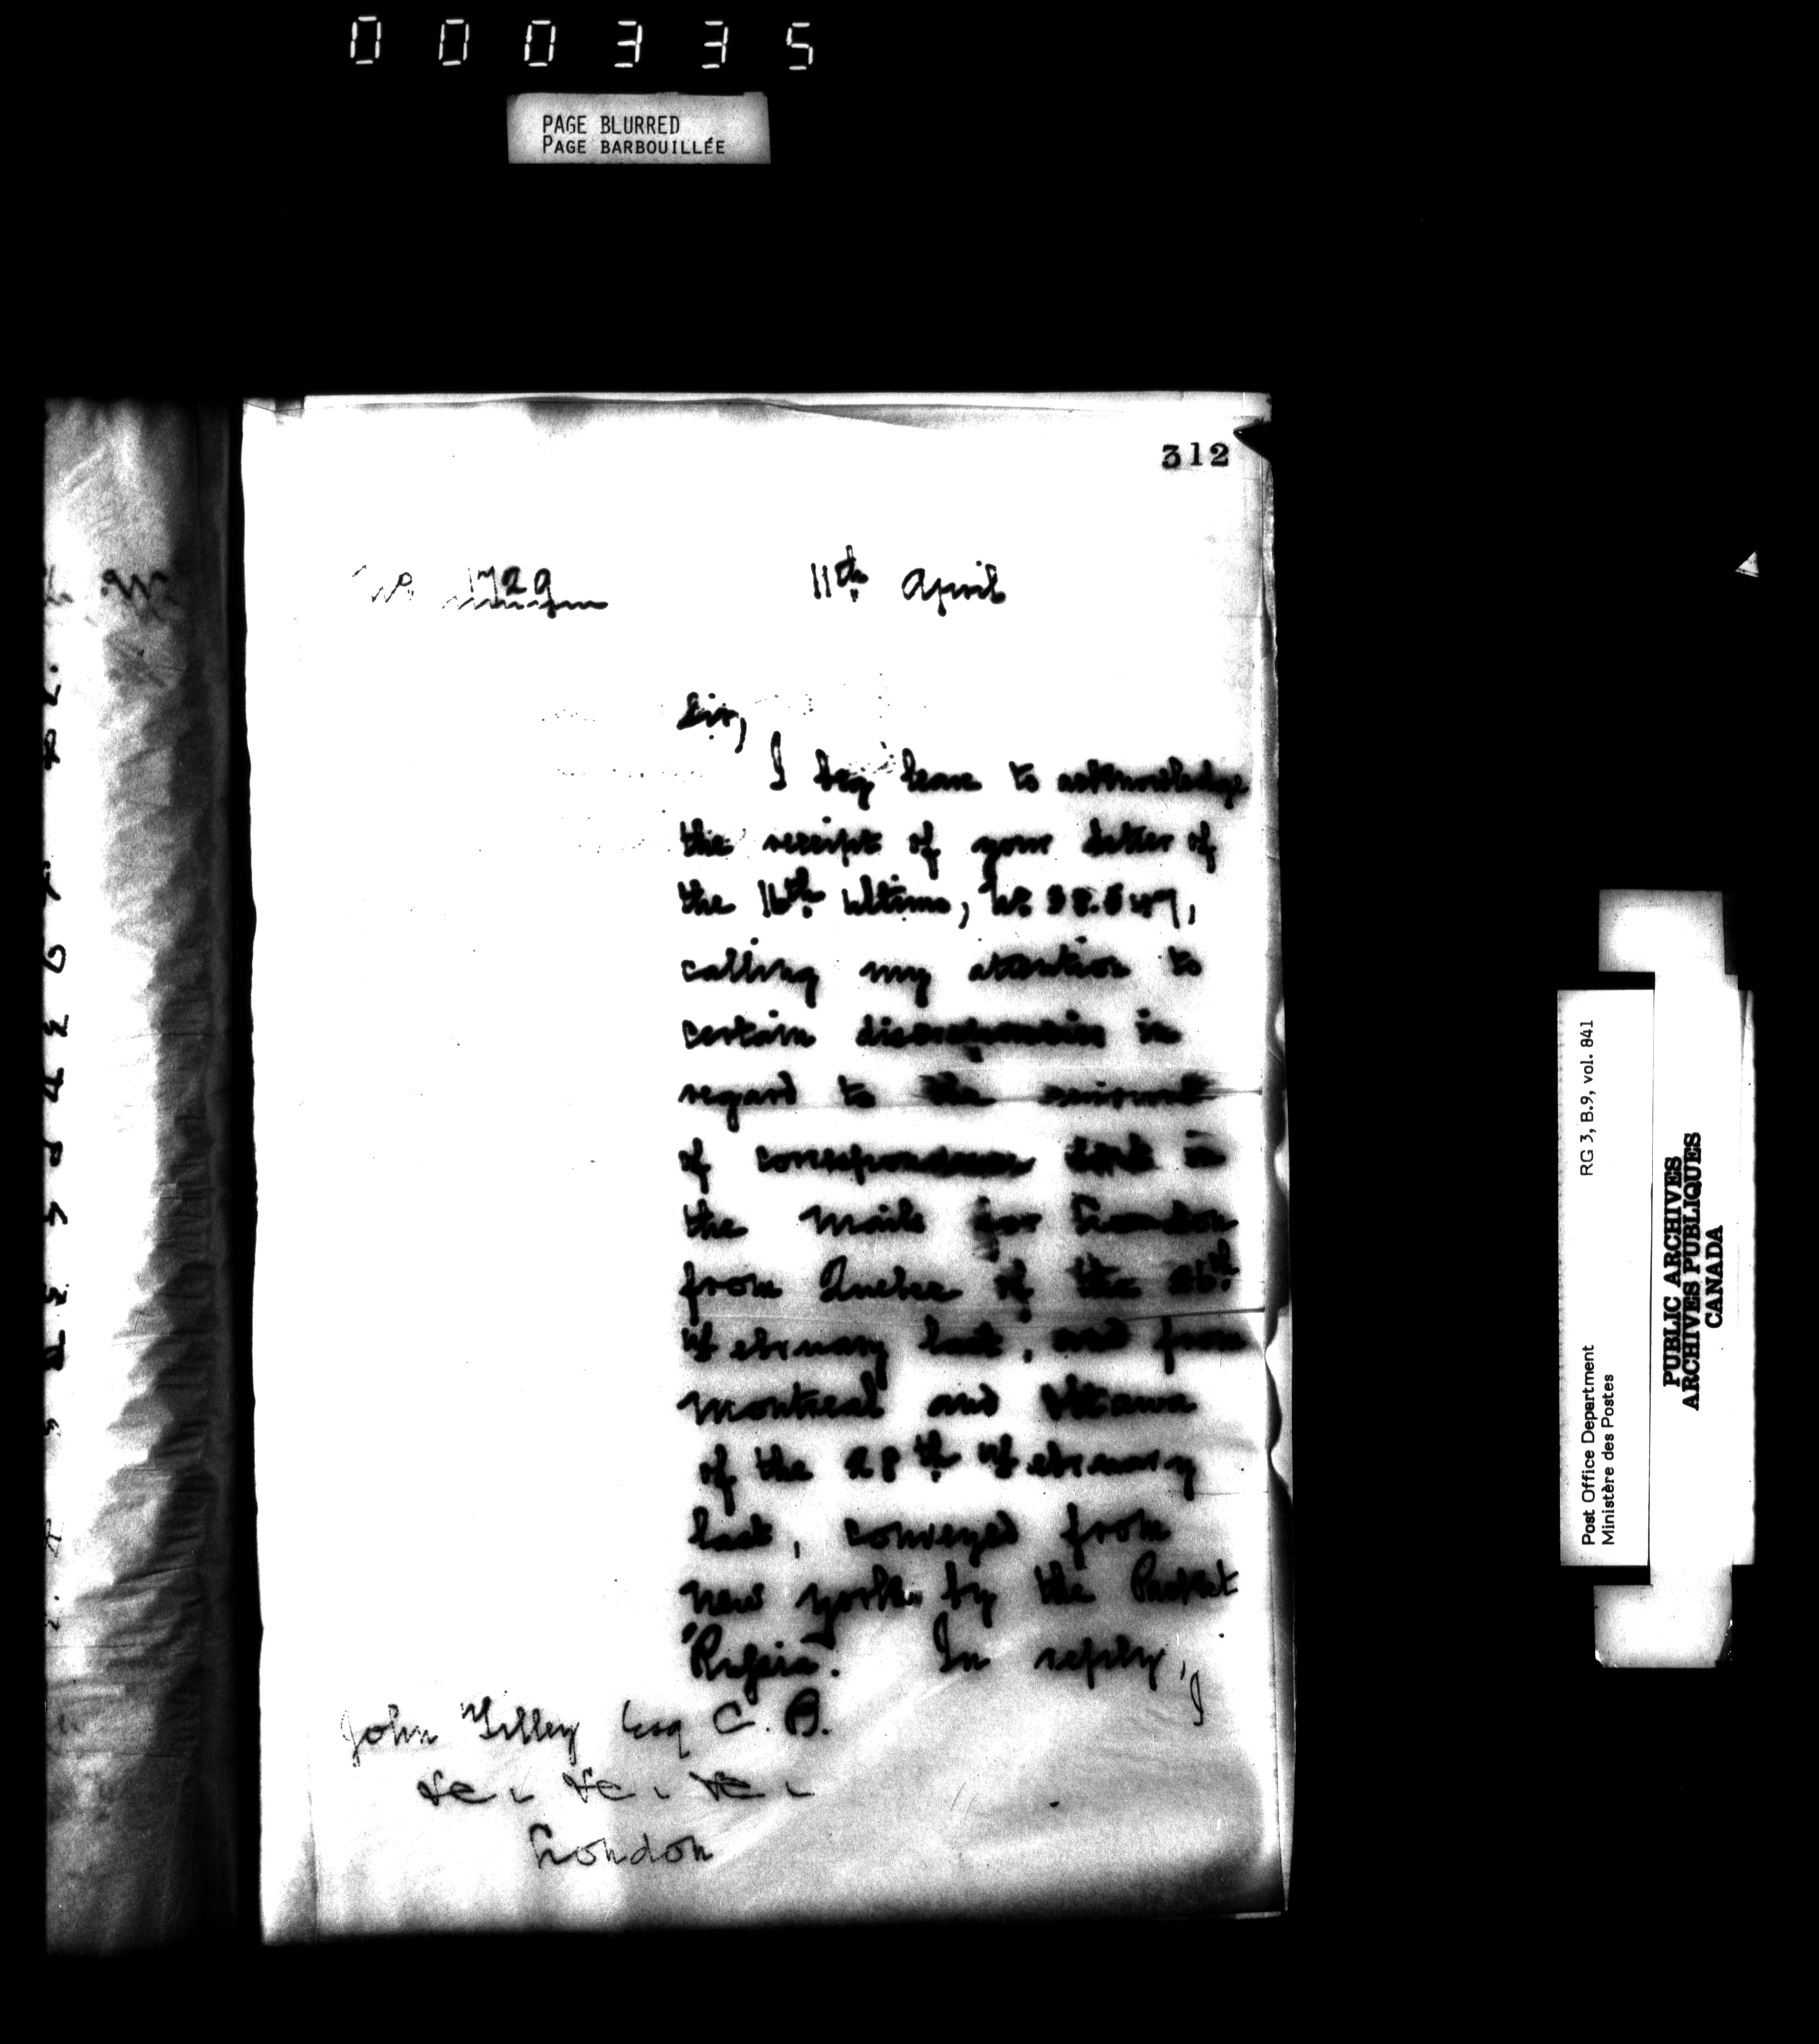 000335
PAGE BLURRED
PAGE BARBOUILLÉE
312
No 1729 11th April
Sir,
I beg leave to acknowledge
the receipt of your letter of
the 16th Ultimo, No
calling my attention to
certain discrepancies in
regard to the amount
of correspondence sent in
the mails for London
from Quebec of the 26th
February last, and from
Montreal and Ottawa
of the 28th February
last, conveyed from
New York by the Packet
"Russia". In reply,
I
John Tilley Esq C. B.
&c. &c. &c.
London
RG 3, B.9, vol. 841
Post Office Department
Ministère des Postes
PUBLIC ARCHIVES
ARCHIVES PUBLIQUES
CANADA